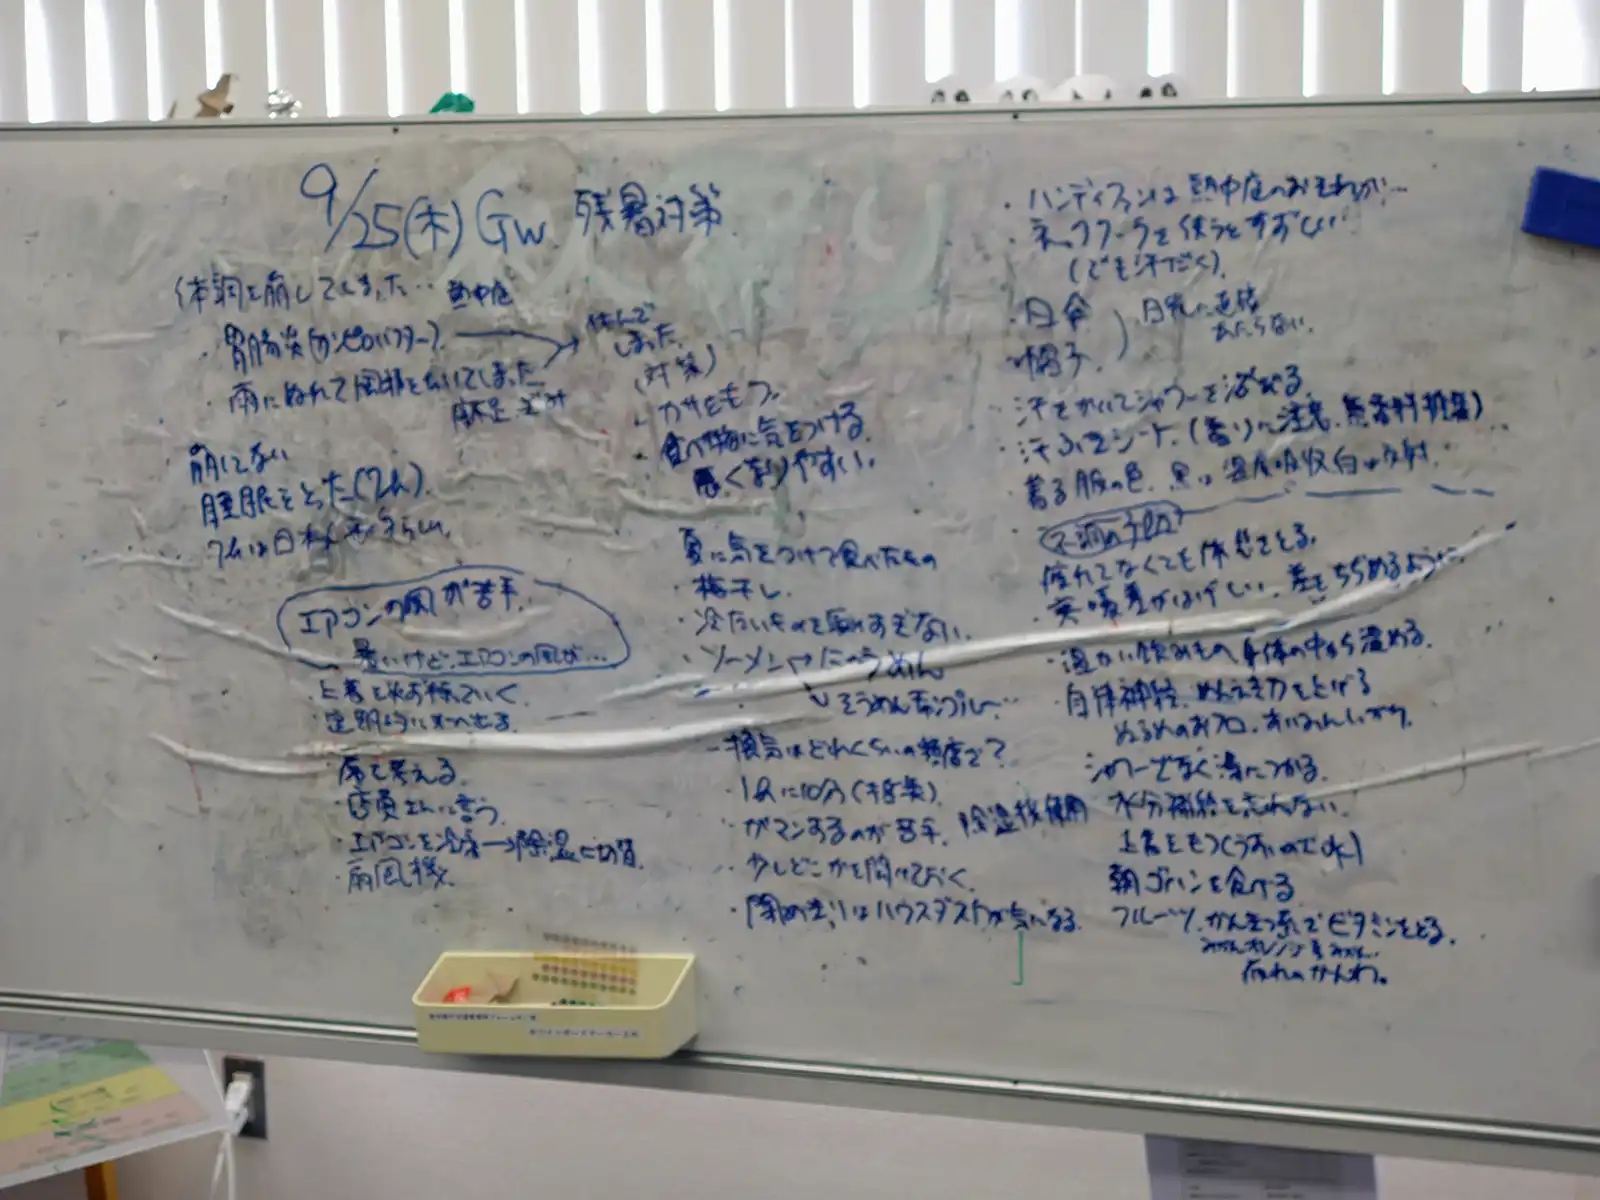 9/25(木) GW 残暑対策
体調を崩してしまった… 熱中症
・胃腸炎(カンピロバクター)
・雨にぬれて風邪をひいてしまった
休んで
しまった
(対策)
カサをもつ。
・食べ物に気をつける
やすい。
崩してない
睡眠をとった(7h)
7hは日本人
エアコンの風が苦手。
暑いけど、エアコンの風が…
・上着を
・定期的に外へ出る
・席を考える
・店員さんに言う
・エアコンを冷房→除湿に切替
・扇風機
夏に気をつけて食べたもの
・梅干し
・冷たいものを取りすぎない
・ソーメン→にゅうめん
そうめんチャンプルー…
換気はどれくらいの頻度で?
・1hに10分
・ガマンするのが苦手。除湿機使用
・少しどこかを開けておく
・閉め切りはハウスダストが気になる
・ハンディファンは熱中症のおそれが…
・ネッククーラーを使うとすずしい
(でも汗だく)
・日傘
・帽子
日光に直接
あたらない
・汗をかいてシャワーを浴びる
・汗ふきシート。(香りに注意、無香料推奨)
・着る服の色。黒は 吸収白は反射
不調の予防
疲れてなくても休憩をとる。
寒暖差がはげしい。差をちぢめるように
・温かい飲みもの 身体の中から温める。
自律神経、めんえき力を上げる
ぬるめのおフロ。
シャワーでなく湯につかる
水分補給を忘れない
上着をもつ(うすいのでok)
朝ゴハンを食べる
フルーツ、かんきつ系でビタミンをとる。